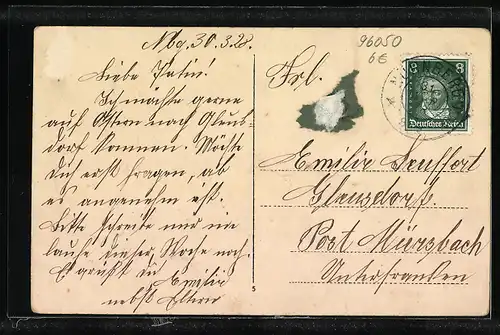 Nbg. 30.3.28.
Liebe Patin!
Ich möchte gerne
auf Ostern nach Gleus-
dorf kommen. Möchte
Dich erst fragen, ob
es angenehm ist.
Bitte schreibe und
diese Woche noch.
Es grüßt
Emilie
nebst Eltern
96050
6€
Frl.
Emilie Seuffert
Gleusdorf.
Post Mürsbach
Unterfranken
8 8
Deutsches Reich
5